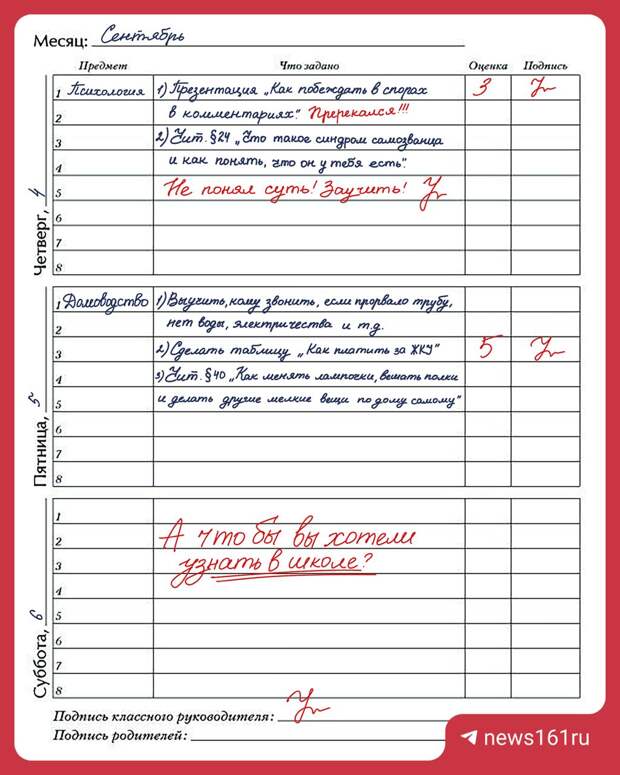 Месяц: Сентябрь
Предмет Что задано Оценка Подпись
Четверг, 4
1 Психология 1) Презентация „Как побеждать в спорах 3
2 в комментариях". Пререкался!!!
3 2) Чит. §24 „Что такое синдром самозванца
4 и как понять, что он у тебя есть".
5 Не понял суть! Заучить!
6
7
8
Пятница, 5
1 Домоводство 1) Выучить, кому звонить, если прорвало трубу,
2 нет воды, электричества и т.д.
3 2) Сделать таблицу „Как платить за ЖКУ" 5
4 3) Чит. §40 „Как менять лампочки, вешать полки
5 и делать другие мелкие вещи по дому самому"
6
7
8
Суббота, 6
1
2 А что бы вы хотели
3 узнать в школе?
4
5
6
7
8
Подпись классного руководителя:
Подпись родителей:
news161ru